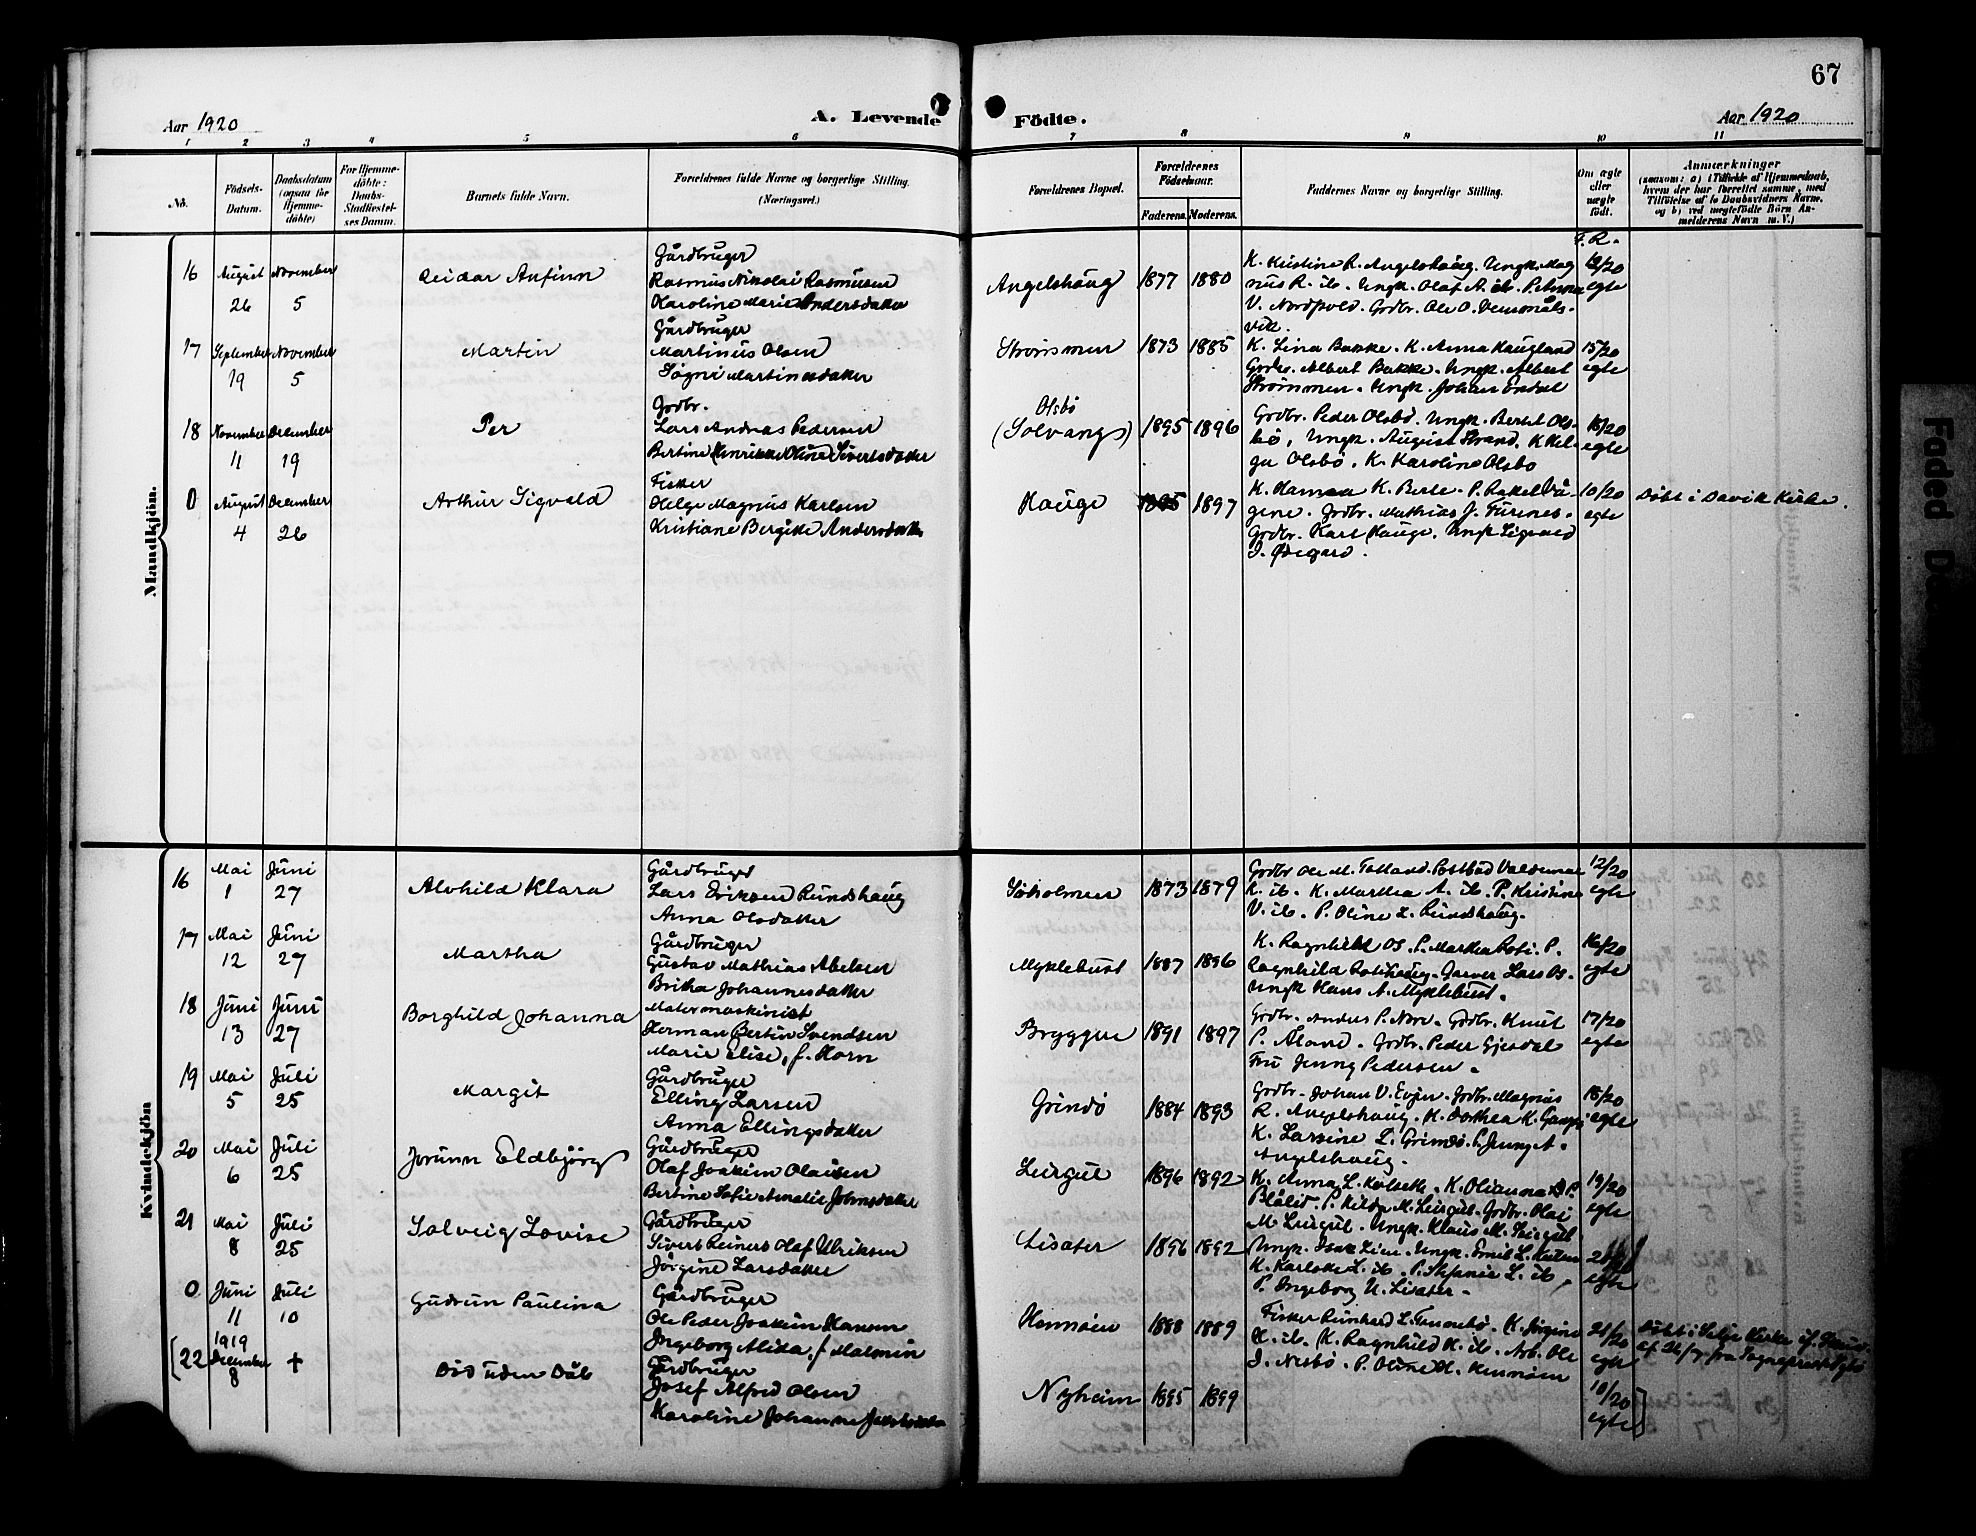 67
Aar 1920
A. Levende
Födte.
Aar 1920
1 2 3 4 5 6 7 8 9 10 11
No.
Födsels-
Datum.
Daabsdatum
(ogsaa for
Hjemme-
döbte)
For Hjemme-
döbte:
Daabs-
Stadfæstel-
ses Datum.
Barnets fulde Navn.
Forældrenes fulde Navne og borgerlige Stilling.
(Næringsvei.)
Forældrenes Bopæl.
Forældrenes
Födselsaar.
Faderens. Moderens.
Faddernes Navne og borgerlige Stilling.
Om ægte
eller
uægte
födt.
Anmærkninger
(saasom: a) i Tilfælde af Hjemmedaab,
hvem der har forrettet samme, med
Tilföielse af to Daabsvidners Navne,
og b) ved uægtefödte Börn An-
melderens Navn m. V.)
F. R.
Mandkjön.
16 August 26 November 5
Reidar Anfinn
Gårdbruger
Rasmus Nikolai Rasmussen
Karoline Marie Andersdatter
Angelshaug 1877 1880
K. Kristine R. Angelshaug. Ungk. Mag
nus R. ib. Ungk. Olaf A. ib. P. Anna
V. Nordpold. Grdbr. Ole O. Demmåls-
vik.
/20
egte
17 September 19 November 5
Martin
Gårdbruger
Martinus Olsen
Søgni Martinusdatter
Strømmen 1873 1885
K. Lina Bakke. K. Anna Haugland
Grdbr. Albert Bakke. Ungk. Albert
Strømmen. Ungk. Johan
15/20
egte
18 November 11 December 19
Per
Grdbr.
Lars Andreas Pedersen
Bertine Henrikke Oline Sivertsdatter
Olsbö
(Solvang) 1895 1896
Grdbr. Peder Olsbö. Ungk. Bertel Ols-
bö, Ungk. August Strand, K. Hel-
ga Olsbö. K. Karoline Olsbö
/20
egte
0 August 4 December 26
Arthur Sigvald
Fisker
Helge Magnus Karlsen
Kristiane Bergitte Andersdatter
Hauge 1897
K. Hansa K. Berle. P. Rakel Vå-
gene. Grdbr. Mathias J. Furenes.
Grdbr. Karl Hauge. Ungk. Sigvald
I. Ødegård.
10/20
egte
Döbt i Davik Kirke.
Kvindekjön
16 Mai 1 Juni 27
Alvhild Klara
Gårdbruger
Lars Eriksen Rundshaug
Anna Olsdatter
Søholmen 1873 1879
Grdbr. Ole M. Totland. Postbud Valdemar
K. ib. K. Martha A. ib. P. Kristine
V. ib. P. Oline L. Rundshaug.
12/20
egte
17 Mai 12 Juni 27
Martha
Gårdbruger
Gustav Mathias Abelsen
Britha Johannesdatter
Myklebust 1887 1896
K. Ragnhild Os. P. Martha P.
Ragnhild Garver Lars Os.
Ungk. Hans A. Myklebust.
16/20
egte
18 Juni 13 Juni 27
Borghild Johanna
Motormaskinist
Herman Bertin Svendsen
Marie Elise, f. Horn
Bryggen 1891 1897
Grdbr. Anders P. Nore. Grdbr. Knut
P. Åland. Grdbr. Peder Gjesdal
Fru Jenny Pedersen.
17/20
egte
19 Mai 5 Juli 25
Margit
Gårdbruger
Elling Larsen
Anna Ellingsdatter
Grindö 1884 1893
Grdbr. Johan V. Grdbr. Magnus
R. Angelshaug. K. Dorthea K.
K. Larsine L. Grindö. P. Jenny A.
Angelshaug.
18/20
egte
20 Mai 6 Juli 25
Jorunn Eldbjörg
Gårdbruger
Olaf Joakim Olaisen
Bertine Sofie Amalie Johnsdatter
Leirgul 1896 1892
K. Anna L. K. Olianna P.
Blålid. P. Hilda M. Leirgul. Grdbr. Olai
M. Leirgul. Ungk. Klaus M. Leirgul
19/20
egte
21 Mai 8 Juli 25
Solveig Lovise
Gårdbruger
Sivert Reinert Olaf Ulriksen
Jörgine Larsdatter
Lisæter 1896 1892
Ungk. Isak Lien. Ungk. Emil L.
K. Karlotte L. ib. P. Stefanie L. ib.
P. Ingeborg U. Lisæter.
egte
0 Juni 11 Juli 10
Gudrun Paulina
Gårdbruger
Ole Peder Joakim Hansen
Ingeborg Alida, f. Malmin
Hennöen 1888 1889
Fisker Reinhard L. K. Jörgine
H. ib. K. Ragnhild K. ib. Arb. Ole
I. Nesbö. P. Oline H. Hennöen
21/20
egte
Döbt i Selje Kirke
af 26/7 fra Sogneprest
(22 1919 December 8 +
Död uden Dåb
Gårdbruger
Josef Alfred Olsen
Karoline Johanne
Nyheim 1895 1899
10/20
egte
Faded